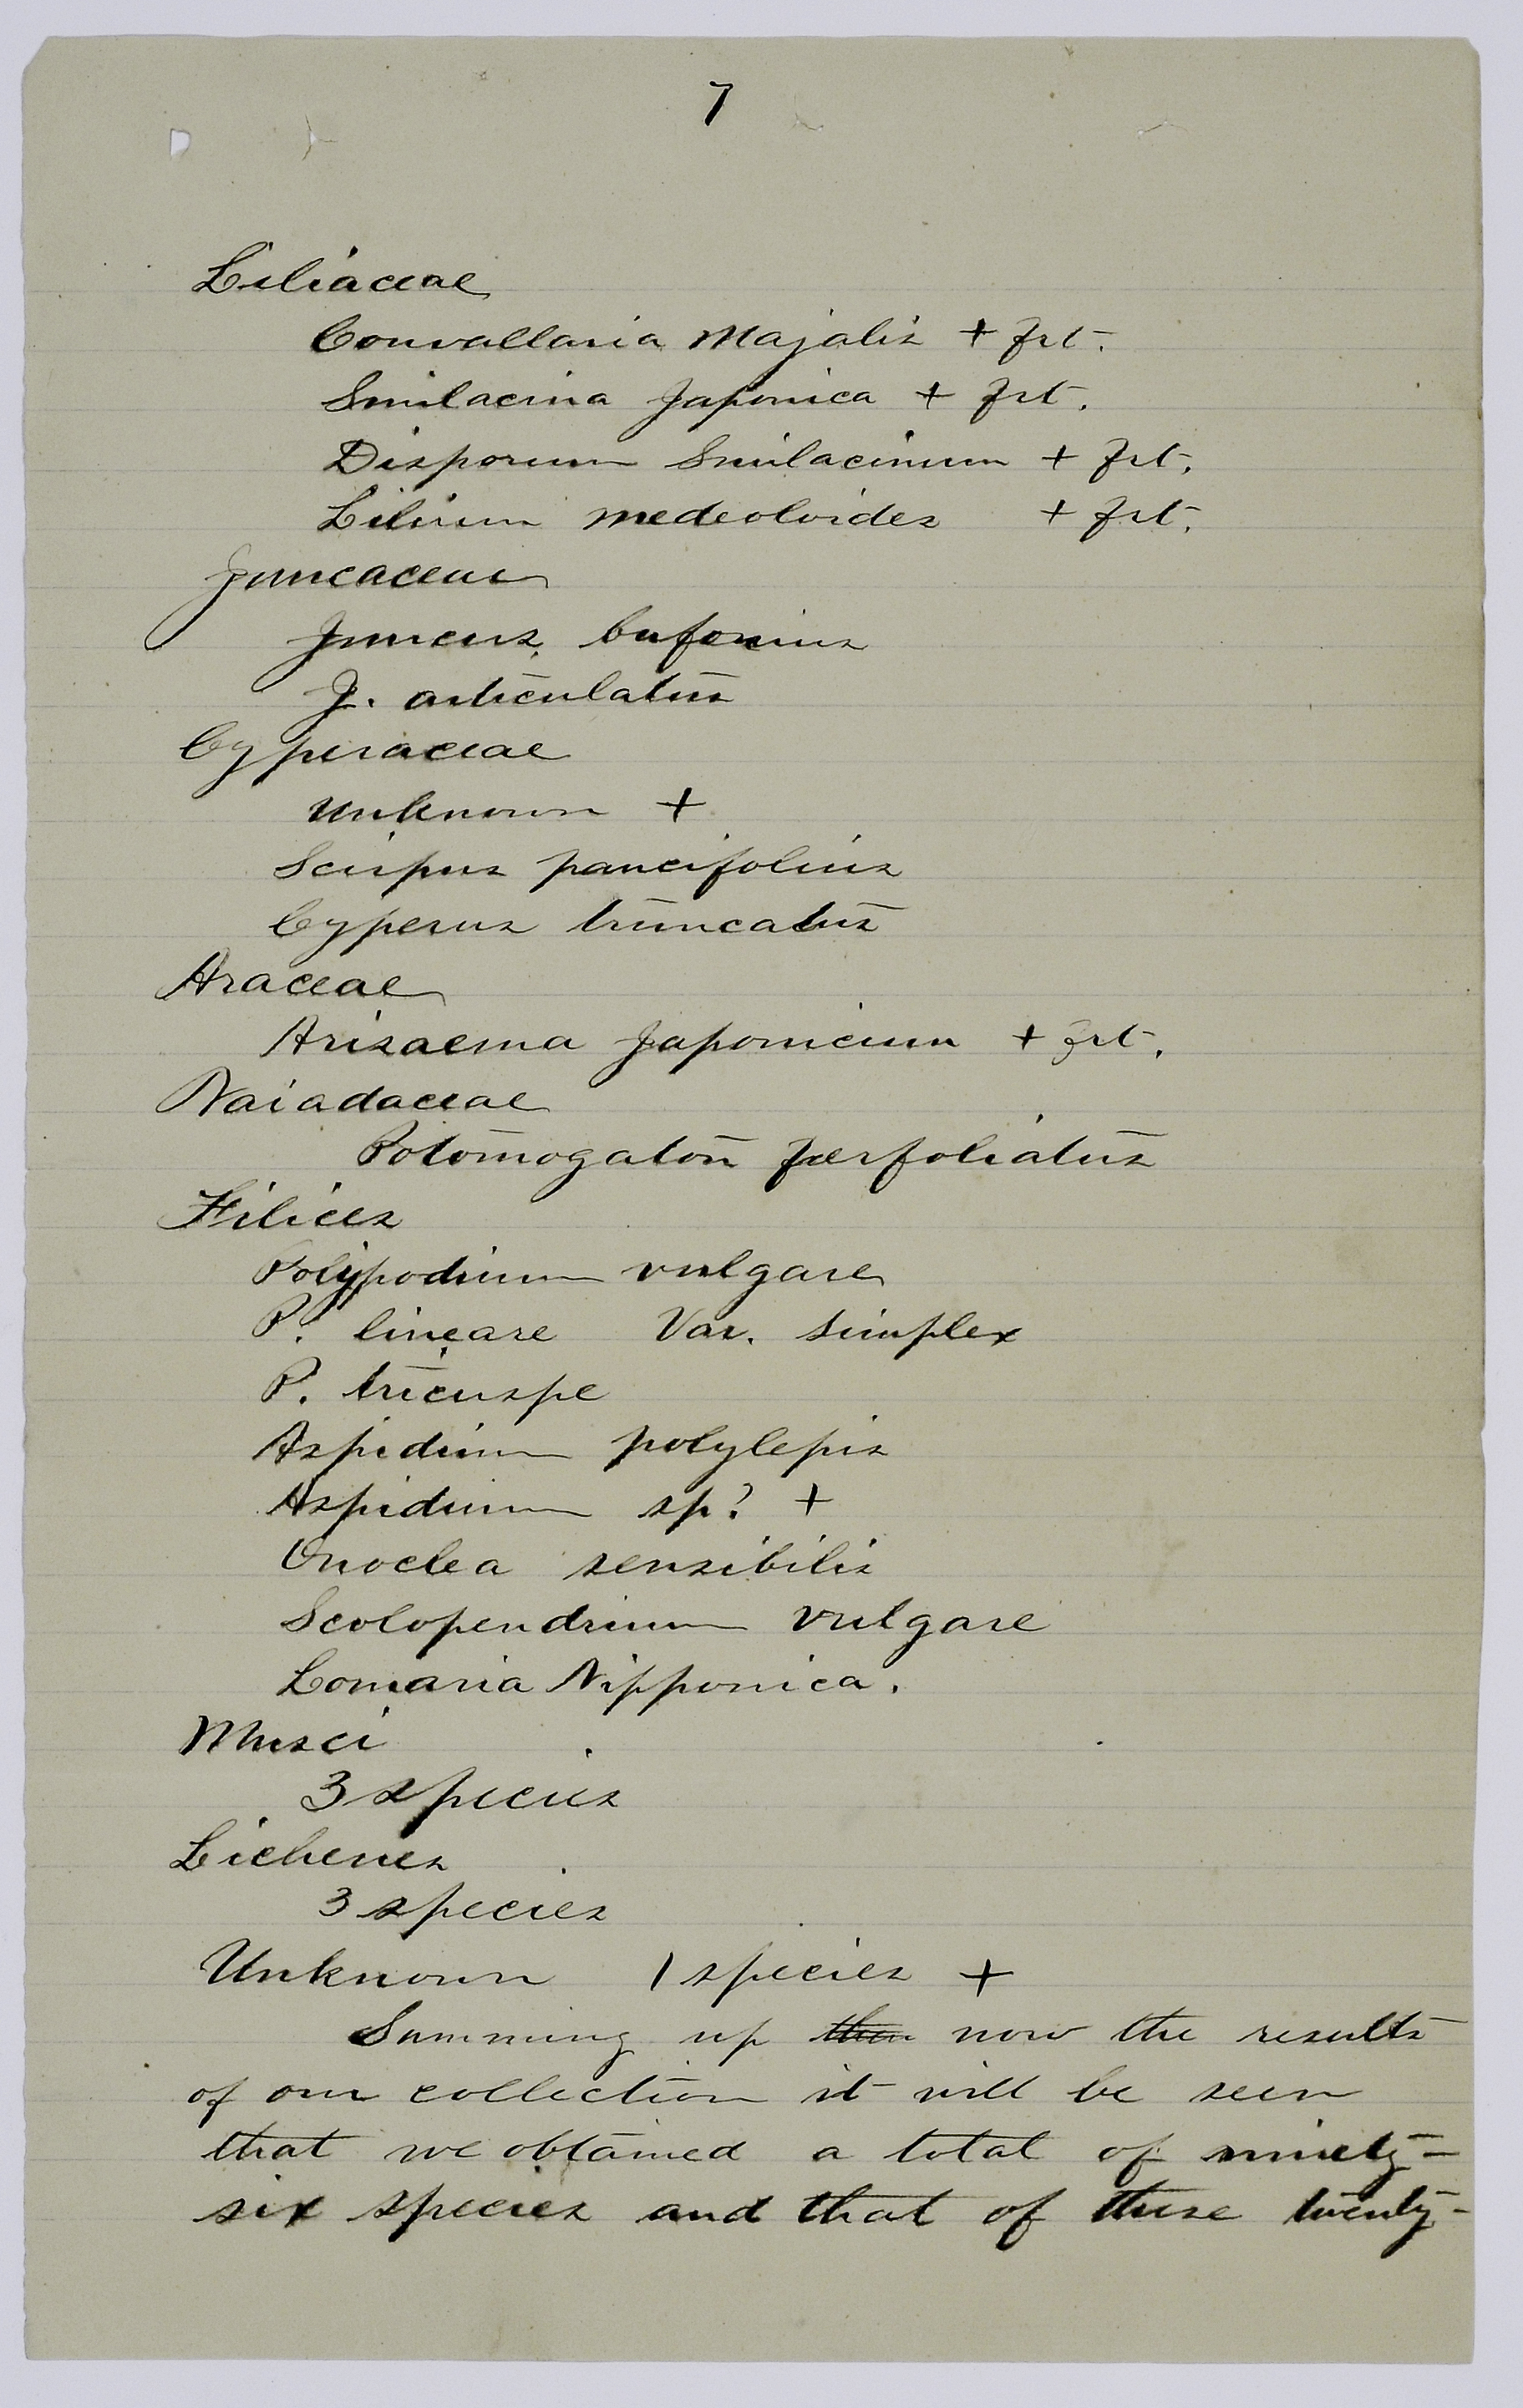 7
Liliaceae
Convallaria Majalis + frt.
Smilacina Japonica + frt.
Disporum Smilacinum + frt.
Lilium medeoloides + frt.
Juncaceae
Juncus bufonius
J. articulatus
Cyperaceae
Unknown +
Scirpus paucifolius
Cyperus truncatus
Araceae
Arisaema Japonicum + frt.
Naiadaceae
Potomogaton perfoliatus
Filices
Polypodium vulgare
P. lineare Var. simplex
P. tricuspe
Aspidium polylepis
Aspidium sp? +
Onoclea sensibilis
Scolopendrium vulgare
Lomaria Nipponica.
Musci
3 species
Lichenes
3 species
Unknown 1 species +
Summing up then now the results
of our collection it will be seen
that we obtained a total of ninety-
six species and that of these twenty-